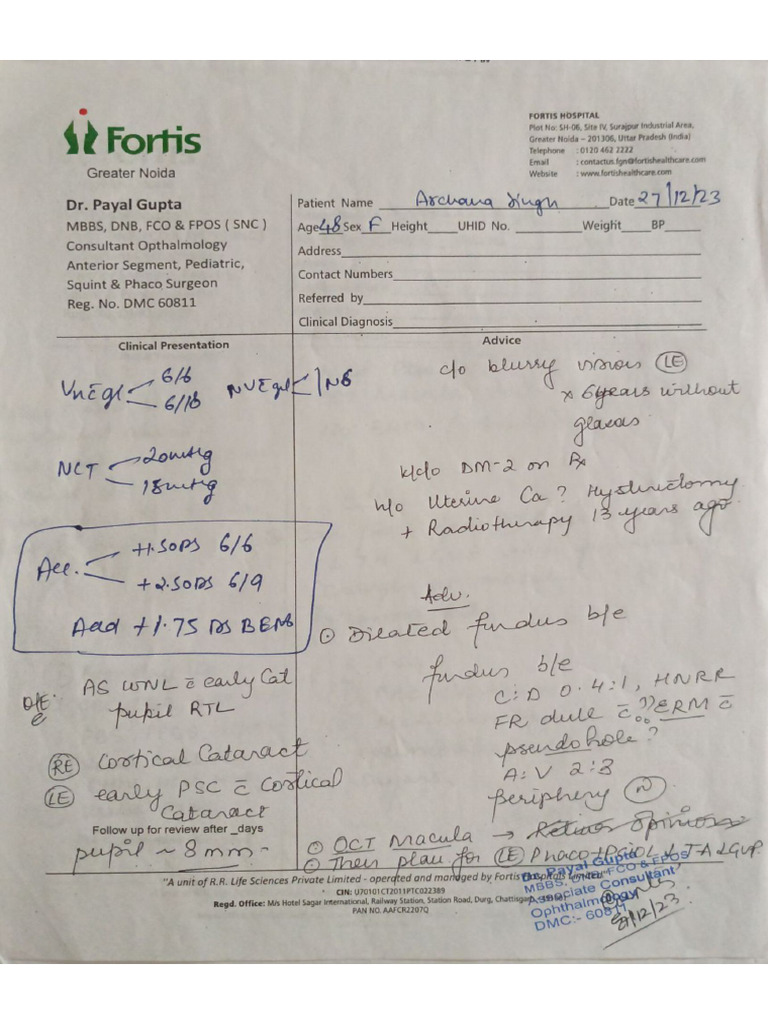 Fortis
Greater Noida
FORTIS HOSPITAL
Plot No: SH-06, Site IV, Surajpur Industrial Area,
Greater Noida – 201306, Uttar Pradesh (India)
Telephone : 0120 462 2222
Email : contactus.fgn@fortishealthcare.com
Website : www.fortishealthcare.com
Dr. Payal Gupta
MBBS, DNB, FCO & FPOS ( SNC )
Consultant Opthalmology
Anterior Segment, Pediatric,
Squint & Phaco Surgeon
Reg. No. DMC 60811
Patient Name Archana Singh Date 27/12/23
Age 48 Sex F Height UHID No. Weight BP
Address
Contact Numbers
Referred by
Clinical Diagnosis
Clinical Presentation
Vn c̄ gl 6/6
6/18
NV c̄ gl N6
NCT 20mmHg
18mmHg
Acc. +1.50DS 6/6
+2.50DS 6/9
Add +1.75 DS BE N6
O/E.
AS WNL c̄ early Cat
pupil RTL
RE Cortical Cataract
LE early PSC c̄ Cortical
Cataract
Follow up for review after _days
pupil ~ 8mm -
Advice
c/o blurry vision LE
x 6 years without
glasses
k/c/o DM-2 on Rx
h/o Uterine Ca ? Hysterectomy
+ Radiotherapy 13 years ago.
Adv.
Dilated fundus b/e
fundus b/e
C:D 0.4:1, HNRR
FR dull c̄ ?? ERM c̄
pseudohole?
A:V 2:3
periphery N
OCT Macula → Retina Opinion
Then plan for LE Phaco + PCIOL LTA GVP
"A unit of R.R. Life Sciences Private Limited - operated and managed by Fortis Hospitals Limited"
CIN: U70101CT2011PTC022389
Regd. Office: M/s Hotel Sagar International, Railway Station, Station Road, Durg, Chattisgarh,
PAN NO. AAFCR2207Q
Dr. Payal Gupta
MBBS, FCO & FPOS
Associate Consultant
Ophthalmology
DMC:- 60811
27/12/23